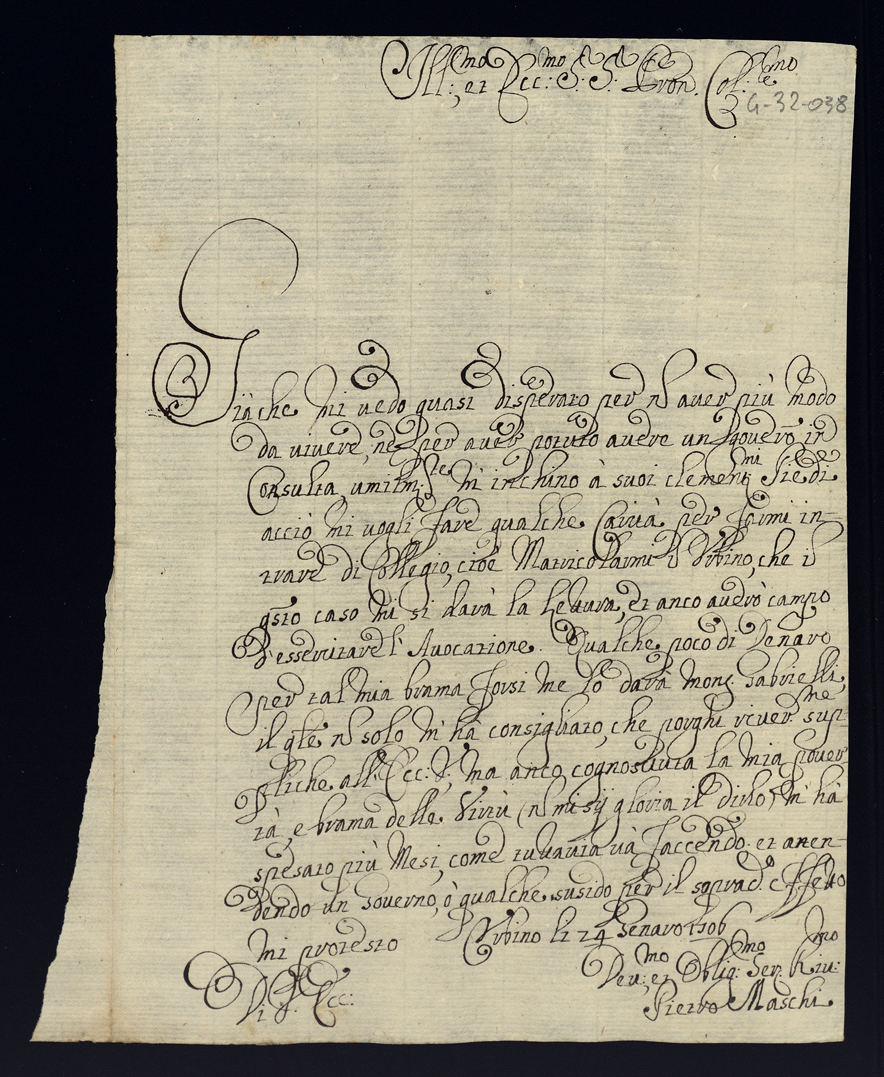 Ill:mo et Ecc:mo S. S. Pron. Col:mo
G-32-038
Giache mi vedo quasi disperato per n aver più modo
da vivere, ne per aver potuto avere un Governo in
Consulta, umilm:te m'inchino à suoi clement:mi Piedi
acciò mi vogli fare qualche Carità per farmi in-
trare di Collegio, cioè Matricolarmi i Urbino, che i
qsto caso mi si darà la Lettura, et anco averò campo
d'essercitare l'Avocazione. Qualche poco di Denaro
per tal mia brama forsi me lo darà Mons. Gabrielli,
il qle n solo m'hà consigliato, che porghi river:me sup-
pliche all'Ecc: V:, ma anco cognosciuta la mia pover-
tà, e brama delle Virtù (n mi sij gloria il dirlo) m'hà
spesato più Mesi, come tuttavia và faccendo. et atten-
dendo un Governo, ò qualche susido per il soprad.o effetto
mi protesto Urbino li 24 Genaro 1706
Di V. Ecc:
Dev:mo et Oblig:mo Ser. Riv:mo
Pietro Maschi